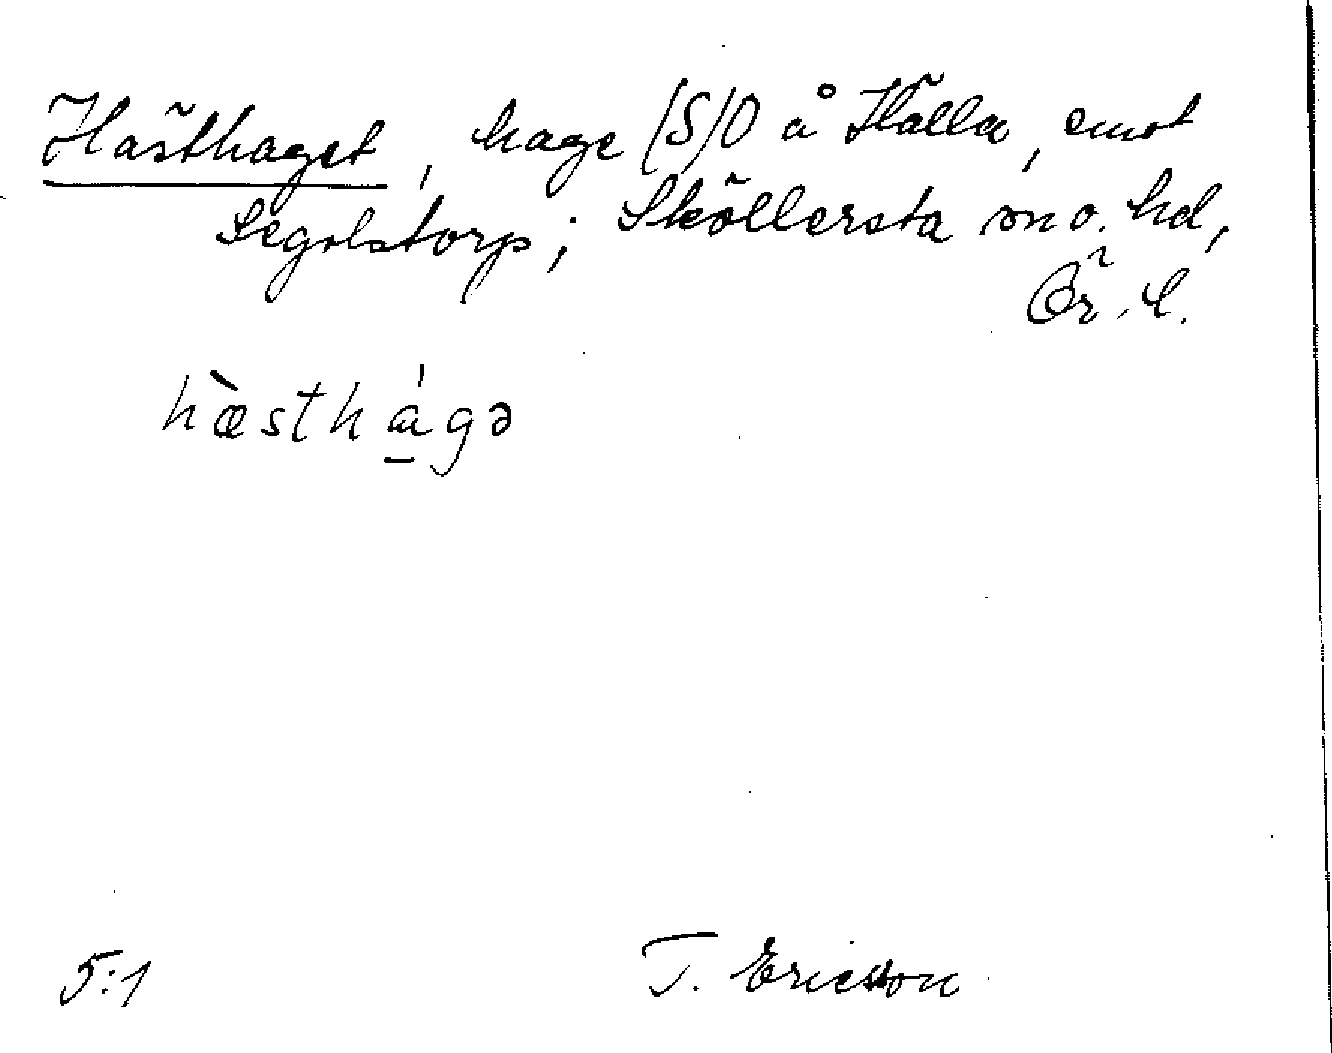 Hästhaget, hage (S)O å Hälla, emot
Segolstorp; Sköllersta sn o. hd,
Ör. l.
hæ̀sthá̱gə
5:1
T. Ericsson